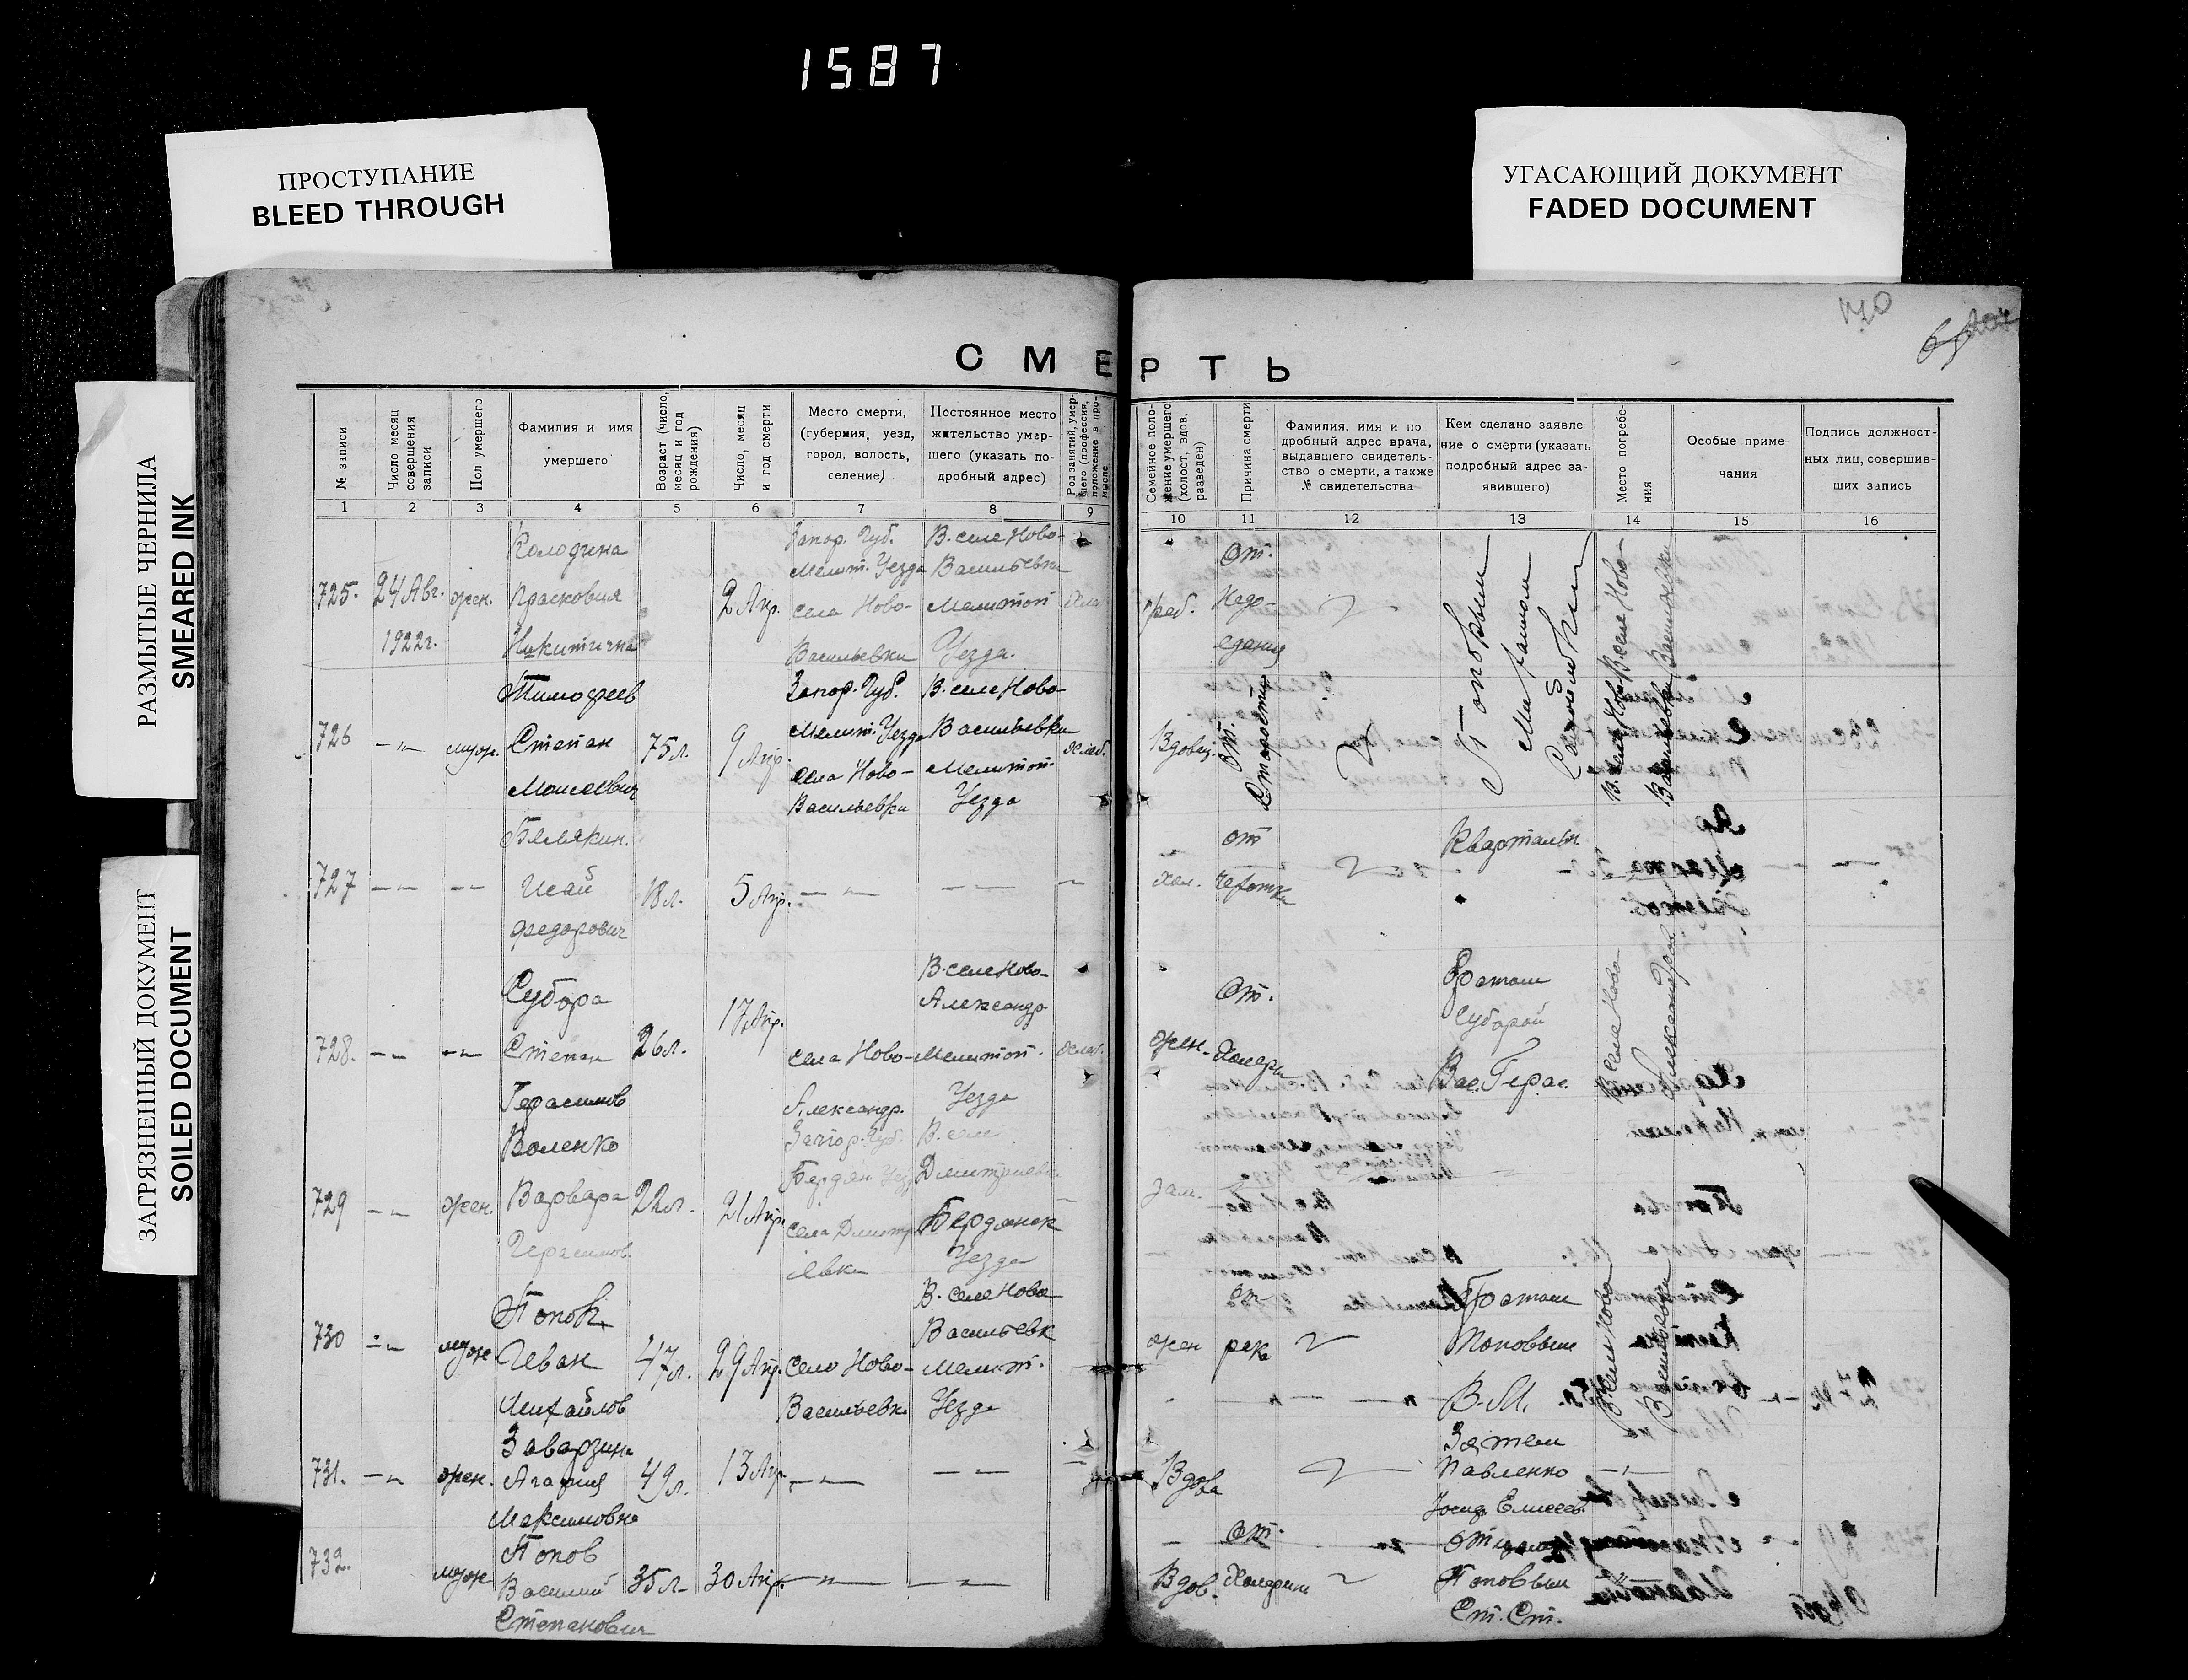 1587
ПРОСТУПАНИЕ
BLEED THROUGH
УГАСАЮЩИЙ ДОКУМЕНТ
FADED DOCUMENT
РАЗМЫТЫЕ ЧЕРНИЛА
SMEARED INK
ЗАГРЯЗНЕННЫЙ ДОКУМЕНТ
SOILED DOCUMENT
170
СМЕРТЬ
№ записи
Число месяц
совершения
записи
Пол умершего
Фамилия и имя
умершего
Возраст (число,
месяц и год
рождения)
Число, месяц
и год смерти
Место смерти,
(губерния, уезд,
город, волость,
селение)
Постоянное место
жительство умер-
шего (указать по-
дробный адрес)
Род занятий, умер-
шего (профессия,
положение в про-
мысле
Семейное поло-
жение умершего
(холост, вдов,
разведен)
Причина смерти
Фамилия, имя и по
дробный адрес врача,
выдавшего свидетель-
ство о смерти, а также
№ свидетельства
Кем сделано заявле
ние о смерти (указать
подробный адрес за-
явившего)
Место погребе-
ния
Особые приме-
чания
Подпись должност-
ных лиц, совершив-
ших запись
1 2 3 4 5 6 7 8 9 10 11 12 13 14 15 16
725.
24 Авг.
1922г.
жен.
Колодина
Прасковия
Никитична
2 Апр.
Запор. Губ.
Мелит. Уезда
села Ново-
Васильевки
В. селе Ново-
Васильевки
Мелитоп
Уезда.
От.
Недо-
едания
Поповым
В. селе Ново
Васильевки
726
— " —
муж.
Тимофеев
Степан
Моисеевич
75 л.
9 Апр.
Запор. Губ.
Мелит. Уезда
села Ново-
Васильевки
В. селе Ново-
Васильевки
Мелитоп.
Уезда
Вдовец.
От.
Старости
В. селе Ново
Васильевки
727
— " —
— " —
Исай
Федорович
18 л.
5 Апр.
— " —
— " —
хол.
от
чахотки
728.
— " —
— " —
Субора
Степан
Герасимов
26 л.
17 Апр.
села Ново-
Александр.
В. селе Ново-
Александр
Мелитоп.
Уезда
жен.
От.
Холеры
Братом
Суборой
Вас. Герас.
В селе Ново
Александров
729
— " —
жен.
Воленко
Варвара
Герасимов.
22 л.
21 Апр
Запор. Губ.
Бердян Уезд
села Дмитр
иевка
В. селе
Дмитриевк
Бердянск
Уезда
зам.
730
— " —
муж
Попов
Иван
Михайлов
47 л.
29 Апр.
село Ново-
Васильевк.
В. селе Ново
Васильевк
Мелит.
Уезда
жен
От
рака
Братом
Поповым
В. М.
В селе Ново
Васильевки
731.
— " —
жен.
Заварзина
Агафия
Максимовна
49 л.
13 Апр
— " —
— " —
Вдова
Зятем
Павленко
Иосиф. Елисеев.
732.
муж
Попов
Василий
Степанович
35 л.
30 Апр.
— " —
— " —
Вдов.
От.
Холеры
Отцом
Поповым
Ст. Ст.